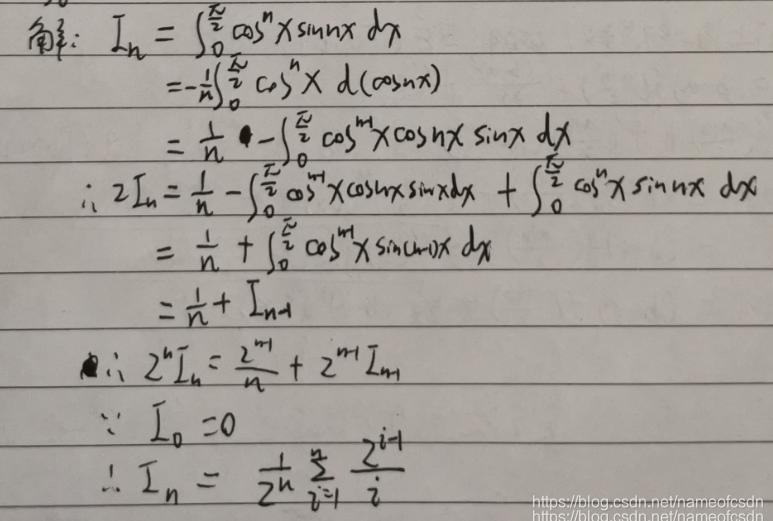 解: Iₙ = ∫₀^{π/2} cosⁿx sinnx dx
= -1/n ∫₀^{π/2} cosⁿx d(cosnx)
= 1/n - ∫₀^{π/2} cosⁿ⁻¹x cosnx sinx dx
∴ 2Iₙ = 1/n - ∫₀^{π/2} cosⁿ⁻¹x cosnx sinx dx + ∫₀^{π/2} cosⁿx sinnx dx
= 1/n + ∫₀^{π/2} cosⁿ⁻¹x sin(n-1)x dx
= 1/n + Iₙ₋₁
∴ 2ⁿIₙ = 2ⁿ⁻¹/n + 2ⁿ⁻¹Iₙ₋₁
∵ I₀ = 0
∴ Iₙ = 1/2ⁿ ∑ᵢ₌₁ⁿ 2ⁱ⁻¹/i
https://blog.csdn.net/nameofcsdn